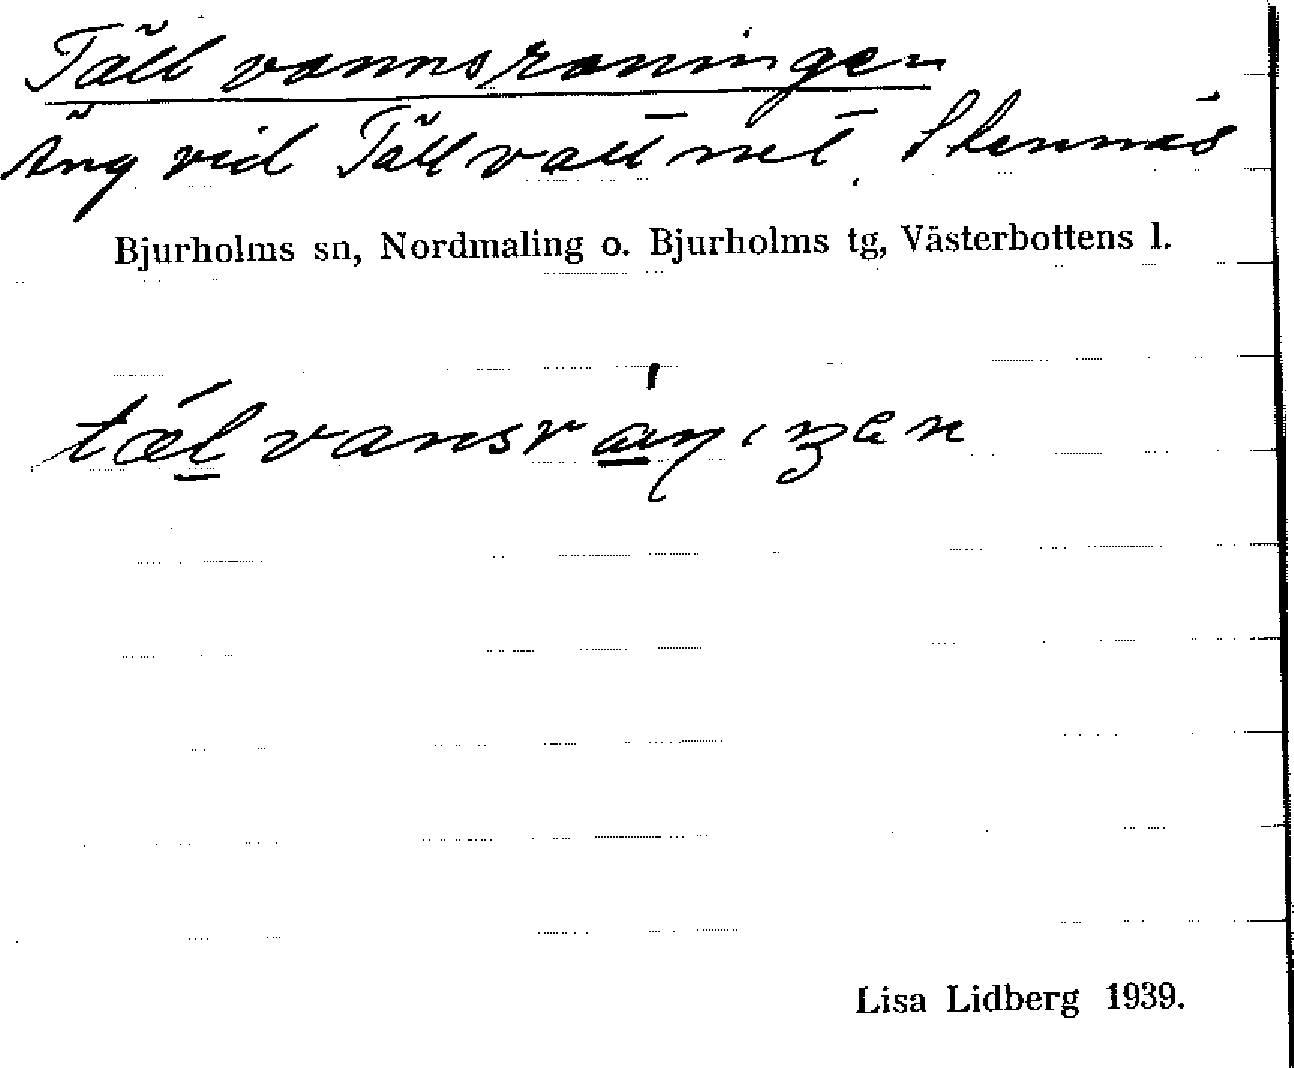 Tällvannsraningen
Äng vid Tällvattnet. Stennäs
Bjurholms sn, Nordmaling o. Bjurholms tg, Västerbottens l.
tælvansrániŋen
Lisa Lidberg 1939.